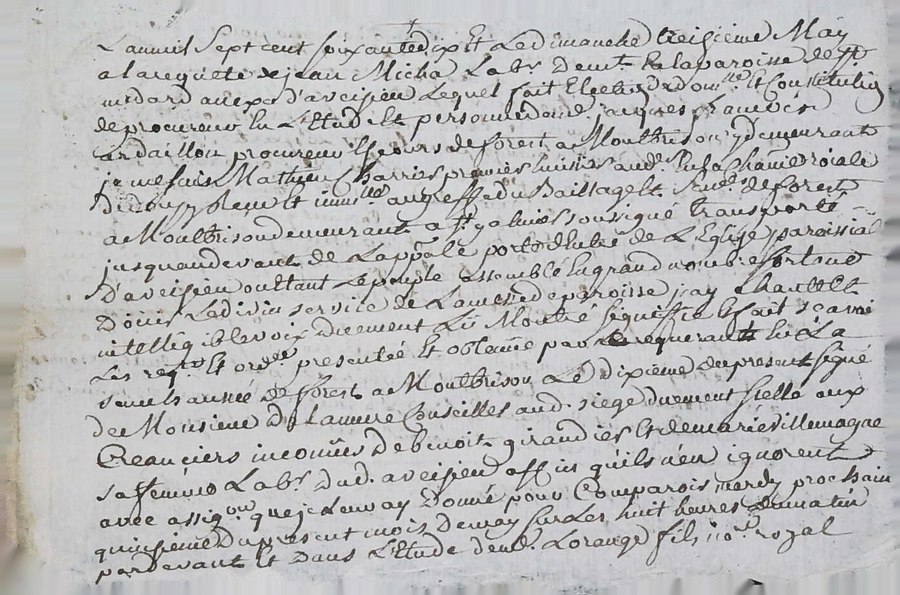 Lanmil Sept cent soixante dix Et Le dimanche treizieme May
a la requete de jean Micha Labr. Demt. En la paroisse de St
medard auxpce d'aveisieu Lequel fait Election de domlle. Et Constitution
de procureur En L'Etude Et personne de me jacques francois
ardaillon procureur Es cours de forest a Montbrison y demeurant
je me suis Mathieu Charles premier huissier aud. En la Chanie roiale
Du Lieu
a Montbrison demeurant a St galmier sousigné transporté
jusquau devant de La pple porte d'entrée de L'Eglise paroissial
D'aveisieu ou Etant Le peuple assemblé En grand nombre sortant
D'ouir La divin service de La messe de paroisse jay a haute Et
intelligible voix duement Lû Montré signiffié Et fait sçavoir
Les reqte. Et ordce. presentée Et obtenüe par Le requerant En La
senechaussée de forest a Montbrison Le dixieme du present signé
de Monsieur D Lameure Conseiller aud. siege duement scellé aux
Creanciers inconnûs de benoit girandier Et de marie villemagne
sa femme Labr. Dud. aveisieu affin qu'ils n'en ignorent
avec assigon. que je Leur ay Donné pour Comparoir mardy prochain
quinzieme du present mois de may sur Les huit heures du matin
pardevant Et Dans L'Etude de me. Lorange fils nore. royal